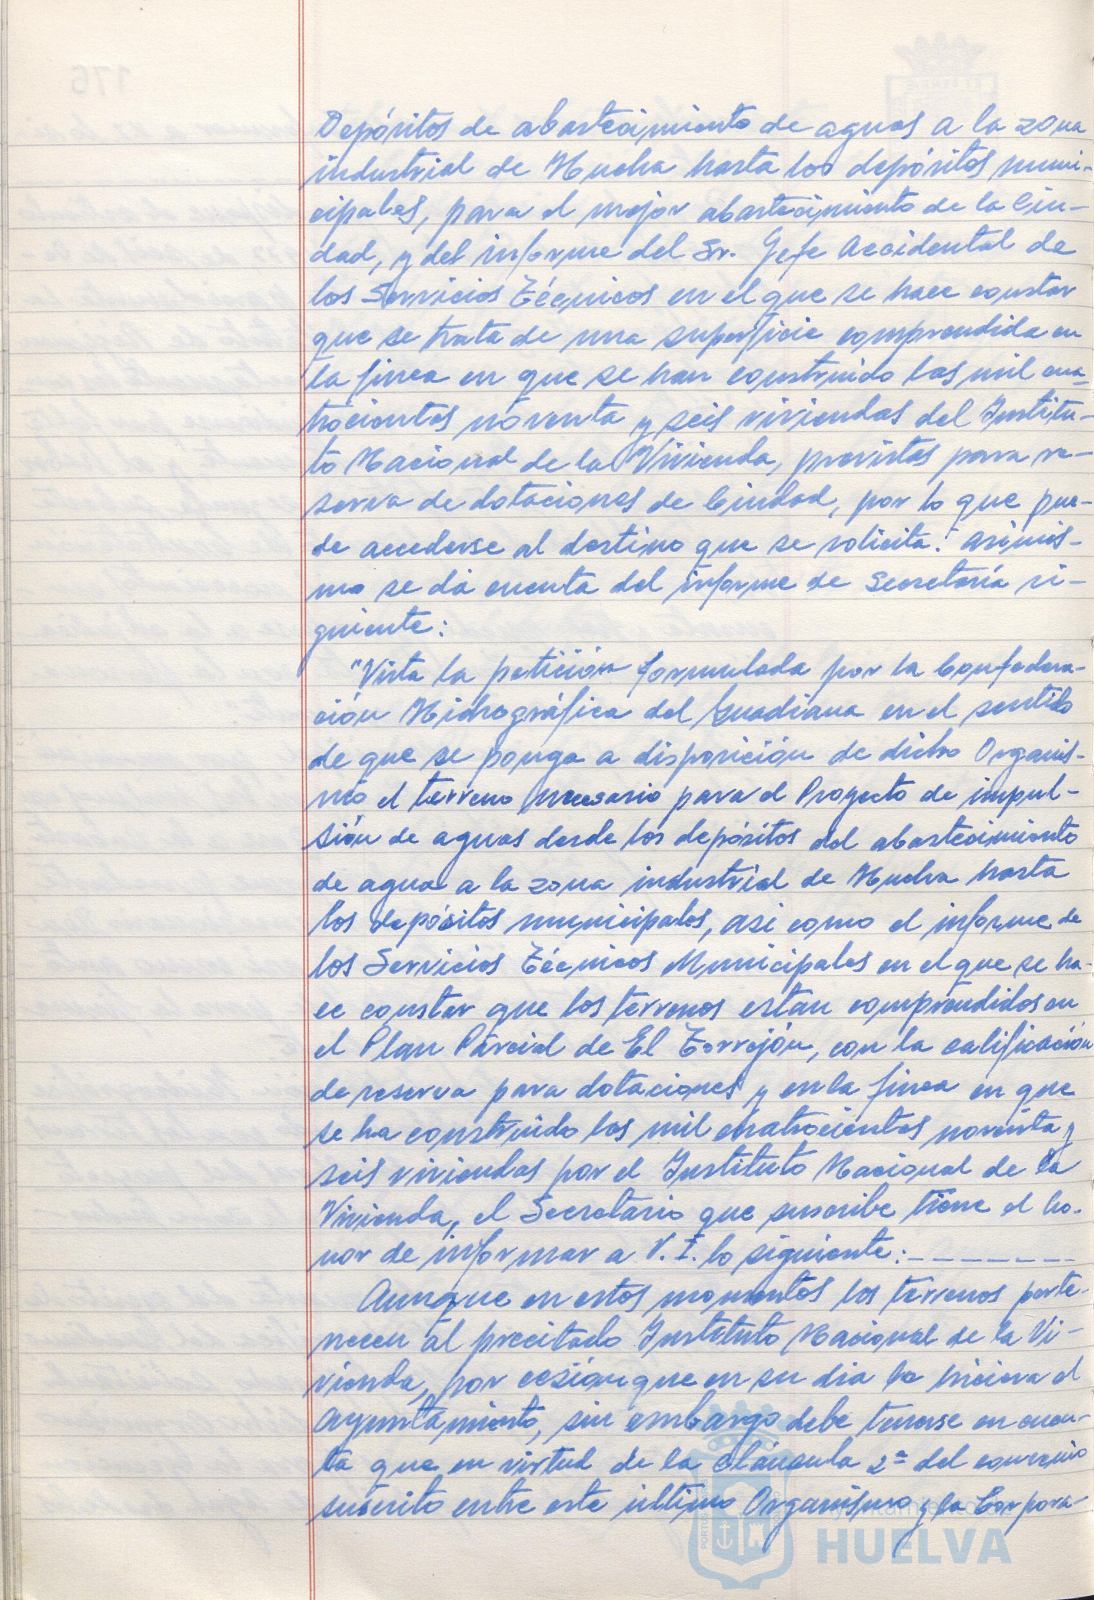 Depósitos de abastecimiento de aguas a la zona
industrial de Huelva hasta los depósitos muni-
cipales, para el mejor abastecimiento de la Ciu-
dad, y del informe del Sr. Jefe Accidental de
los Servicios Técnicos en el que se hace constar
que se trata de una superficie comprendida en
la finca en que se han construido las mil cua-
trocientas noventa y seis viviendas del Institu-
to Nacional de la Vivienda, previstas para re-
serva de dotaciones de Ciudad, por lo que pue-
de accederse al destino que se solicita. asimis-
mo se dá cuenta del informe de Secretaría si-
guiente:
"Vista la petición formulada por la Confedera-
ción Hidrográfica del Guadiana en el sentido
de que se ponga a disposición de dicho Organis-
mo el terreno necesario para el Proyecto de impul-
sión de aguas desde los depósitos del abastecimiento
de agua a la zona industrial de Huelva hasta
los depósitos municipales, asi como el informe de
los Servicios Técnicos Municipales en el que se ha-
ce constar que los terrenos estan comprendidos en
el Plan Parcial de El Torrejón, con la calificación
de reserva para dotaciones y en la finca en que
se ha construido las mil cuatrocientas noventa y
seis viviendas por el Instituto Nacional de la
Vivienda, el Secretario que suscribe tiene el ho-
nor de informar a V. I. lo siguiente:-------
Aunque en estos momentos los terrenos perte-
necen al precitado Instituto Nacional de la Vi-
vienda, por cesión que en su dia le hiciera el
Ayuntamiento, sin embargo debe tenerse en cuen-
ta que en virtud de la cláusula 2ª del convenio
suscrito entre este último Organismo y la Corpora-
HUELVA